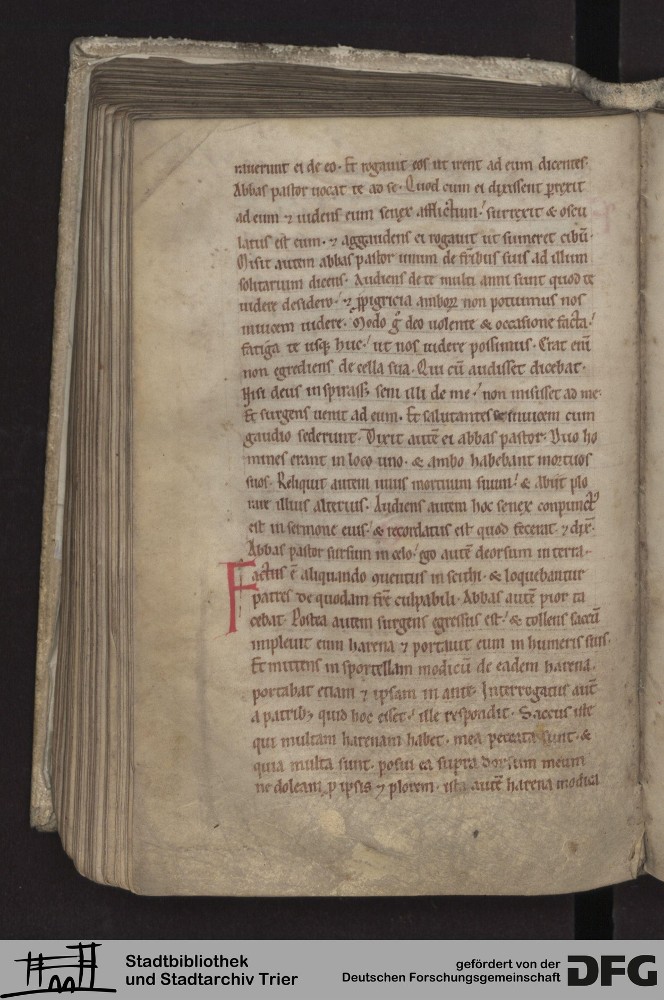 rauerunt ei de eo. Et rogauit eos ut irent ad eum dicentes.
Abbas pastor uocat te ad se. Quod cum ei dixissent prexit
ad eum ⁊ uidens eum senex afflictum. surrexit & oscu
latus est eum. ⁊ aggaudens ei rogauit ut sumeret cibū.
Misit autem abbas pastor unum de frībus suis ad illum
solitarium dicens. Audiens de te multi anni sunt quod te
uidere desidero. ⁊ ppigricia amborꝝ non potuimus nos
inuicem uidere. Modo g̊ deo uolente & occasione facta.
fatiga te usqꝫ huc. ut nos uidere possimus. Erat enī
non egrediens de cella sua. Qui cū audisset dicebat.
Nisi deus inspirass& seni illi de me. non misisset ad me.
Et surgens uenit ad eum. Et salutantes se inuicem cum
gaudio sederunt. Dixit autē ei abbas pastor. Duo ho
mines erant in loco uno. & ambo habebant mortuos
suos. Reliquit autem unus mortuum suum. & abiit plo
rare illius alterius. Audiens autem hoc senex conpunctꝰ
est in sermone eius. & recordatus est quod fecerat. ⁊ dix̄.
Abbas pastor sursum in celo. ego autē deorsum in terra.
Factus ē aliquando conuentus in scithi. & loquebantur
patres de quodam frē culpabili. Abbas autē pior ta
cebat. Postea autem surgens egressus est. & tollens saccū
impleuit eum harena ⁊ portauit eum in humeris suis.
Et mittens in sportellam modicū de eadem harena.
portabat etiam ⁊ ipsam in ante. Interrogatus autē
a patribꝫ quid hoc esset. ille respondit. Saccus iste
qui multam harenam habet. mea peccata sunt. &
quia multa sunt. posui ea supra dorsum meum
ne doleam p ipsis ⁊ plorem. ista autē harena modica
Stadtbibliothek
und Stadtarchiv Trier
gefördert von der
Deutschen Forschungsgemeinschaft
DFG